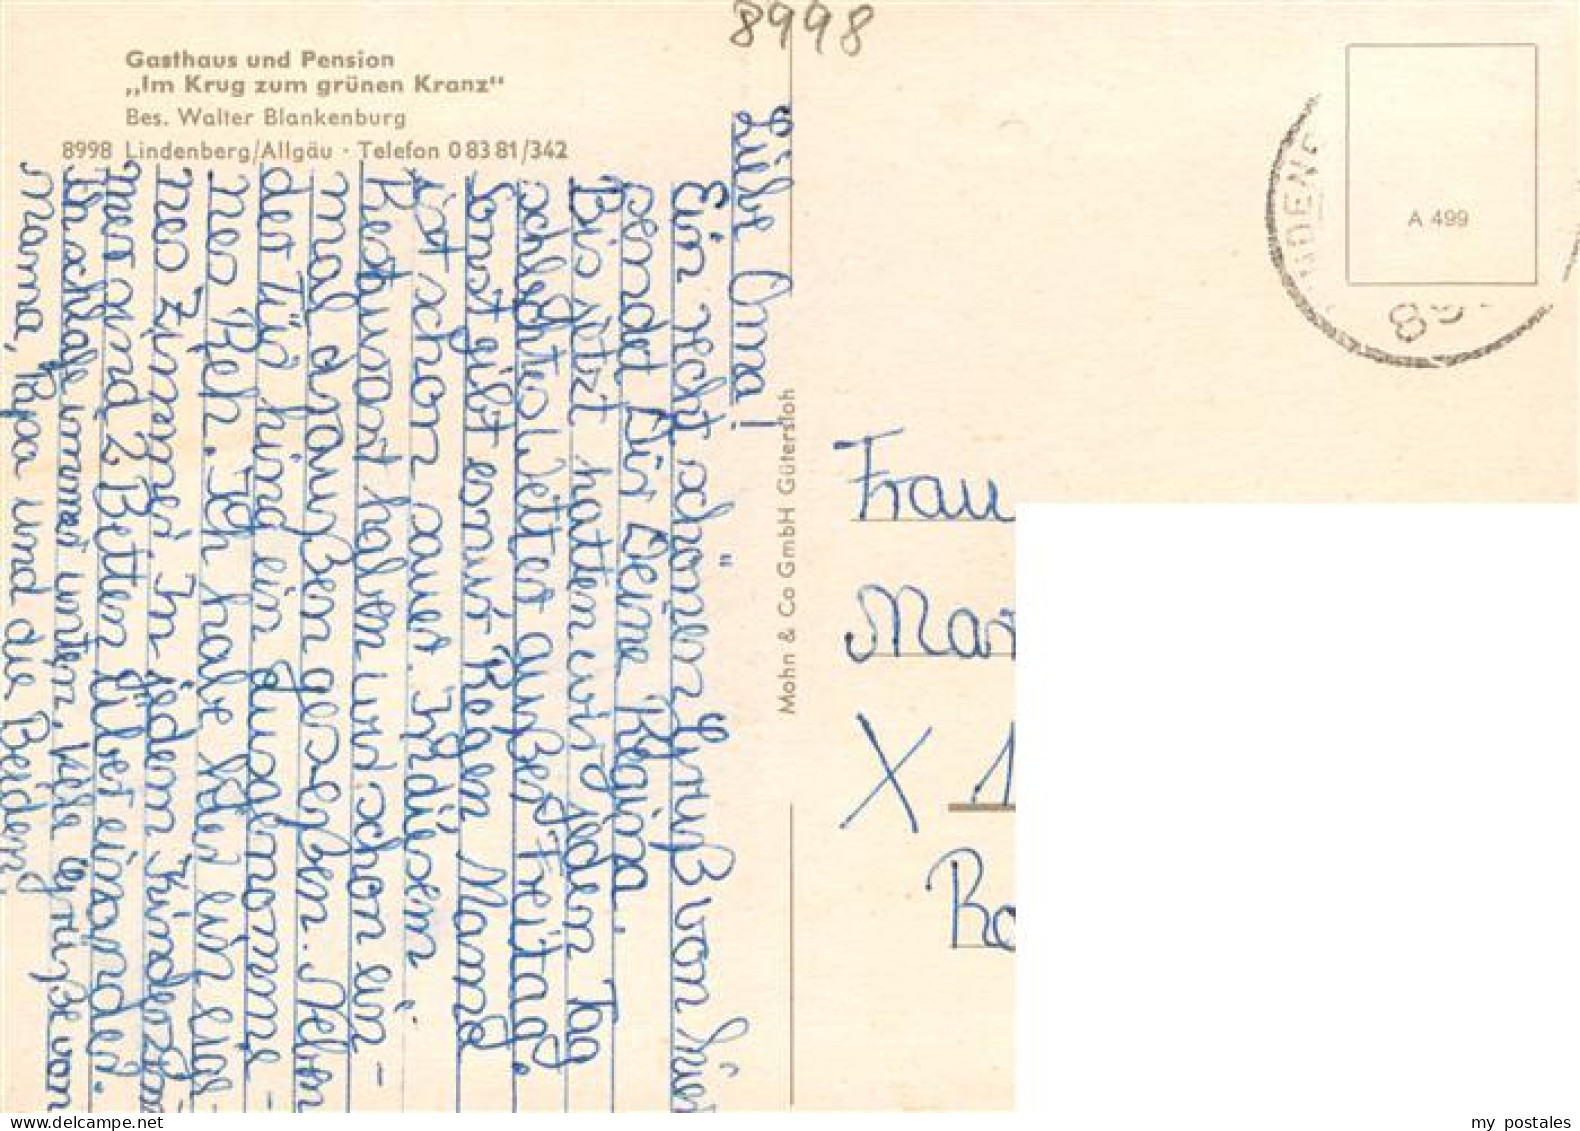 8998
Gasthaus und Pension
„Im Krug zum grünen Kranz"
Bes. Walter Blankenburg
8998 Lindenberg/Allgäu · Telefon 0 83 81/342
Liebe Oma!
Ein recht schönen Gruß von hier
sendet Dir Deine Regina.
Bis jetzt hatten wir jeden Tag
schlechtes Wetter außer Freitag.
Sonst gibt es nur Regen. Mama
ist schon sauer. In diesem
haben wir schon ein-
mal draußen gesessen. Neben
der Tür hing ein
nes Reh. Ich habe hier ein
nes Zimmer. In jedem Kinderzim
mer sind 2 Betten über einander.
Ich schlafe immer unten. Viele Grüße von
Mama, Papa und die Beiden.
Mohn & Co GmbH Gütersloh
A 499
NDENB
89
Frau
Mar
X 1
Ro
my postales